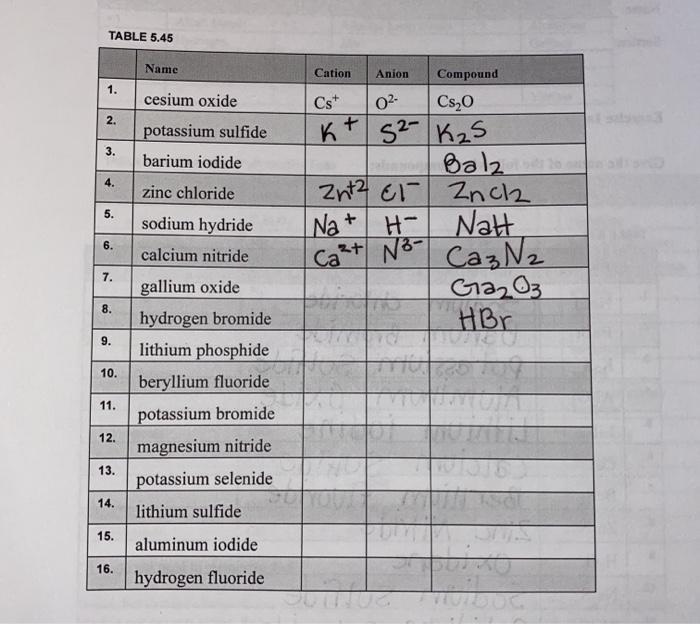 TABLE 5.45
Name Cation Anion Compound
1. cesium oxide Cs⁺ O²⁻ Cs₂O
2. potassium sulfide K⁺ S²⁻ K₂S
3. barium iodide BaI₂
4. zinc chloride Zn⁺² Cl⁻ ZnCl₂
5. sodium hydride Na⁺ H⁻ NaH
6. calcium nitride Ca²⁺ N³⁻ Ca₃N₂
7. gallium oxide Ga₂O₃
8. hydrogen bromide HBr
9. lithium phosphide
10. beryllium fluoride
11. potassium bromide
12. magnesium nitride
13. potassium selenide
14. lithium sulfide
15. aluminum iodide
16. hydrogen fluoride